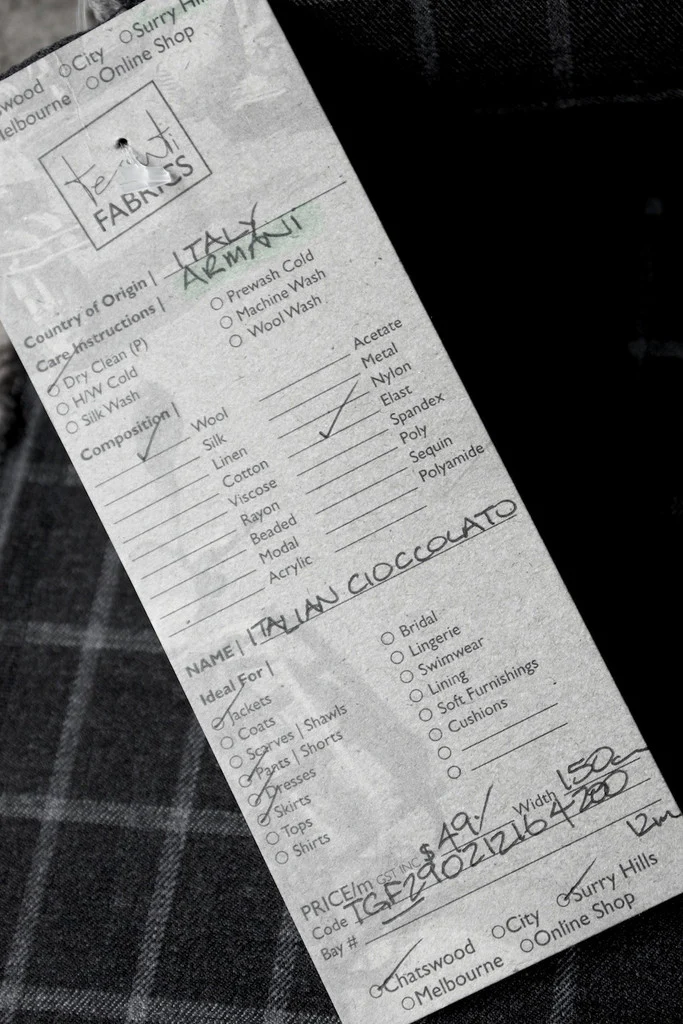 Surry Hil
City
Online Shop
swood
Melbourne
FABRICS
Country of Origin | ITALY
ARMANI
Care Instructions |
Dry Clean (P)
H/W Cold
Silk Wash
Prewash Cold
Machine Wash
Wool Wash
Composition |
Wool
Silk
Linen
Cotton
Viscose
Rayon
Beaded
Modal
Acrylic
Acetate
Metal
Nylon
Elast
Spandex
Poly
Sequin
Polyamide
NAME | ITALIAN CIOCCOLATO
Ideal For |
Jackets
Coats
Scarves | Shawls
Pants | Shorts
Dresses
Skirts
Tops
Shirts
Bridal
Lingerie
Swimwear
Lining
Soft Furnishings
Cushions
PRICE/m GST INC $49/ Width 150cm
Code TGF290212164-200
Bay # 12m
Chatswood
City
Surry Hills
Melbourne
Online Shop